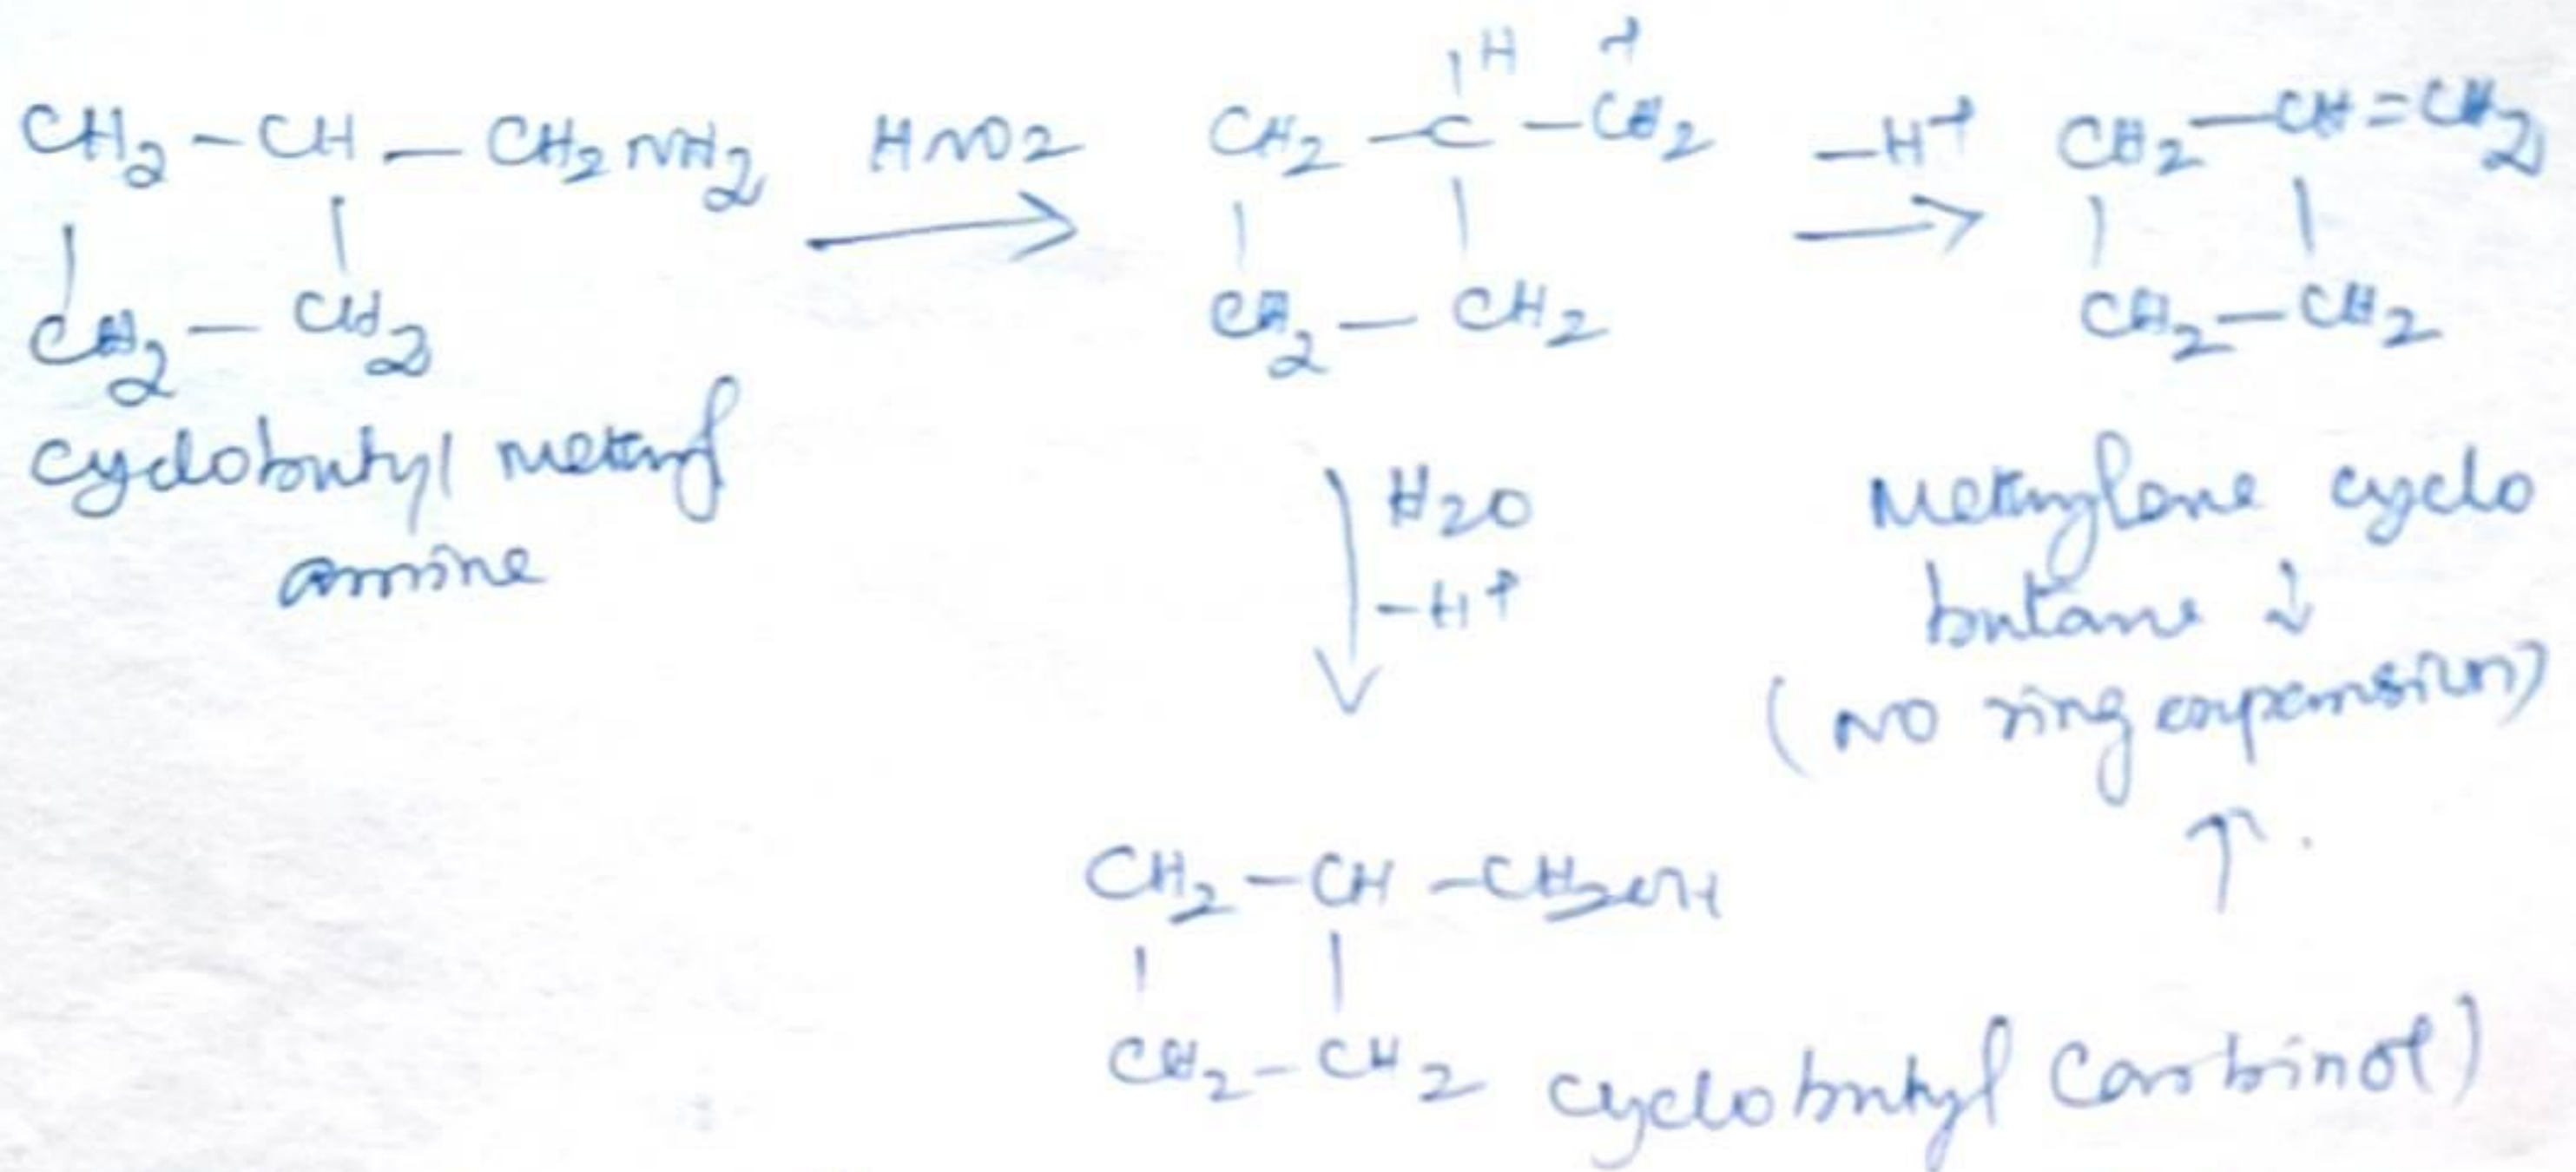 CH2 - CH - CH2NH2 HNO2 CH2 - C - CH2 -H+ CH2 - CH = CH2
H +
CH2 - CH2 CH2 - CH2 CH2 - CH2
cyclobutyl methyl
amine
H2O
-H+
Methylene cyclo
butane ↓
(NO ring expansion)
↑
CH2 - CH - CH2OH
CH2 - CH2 cyclobutyl Carbinol)